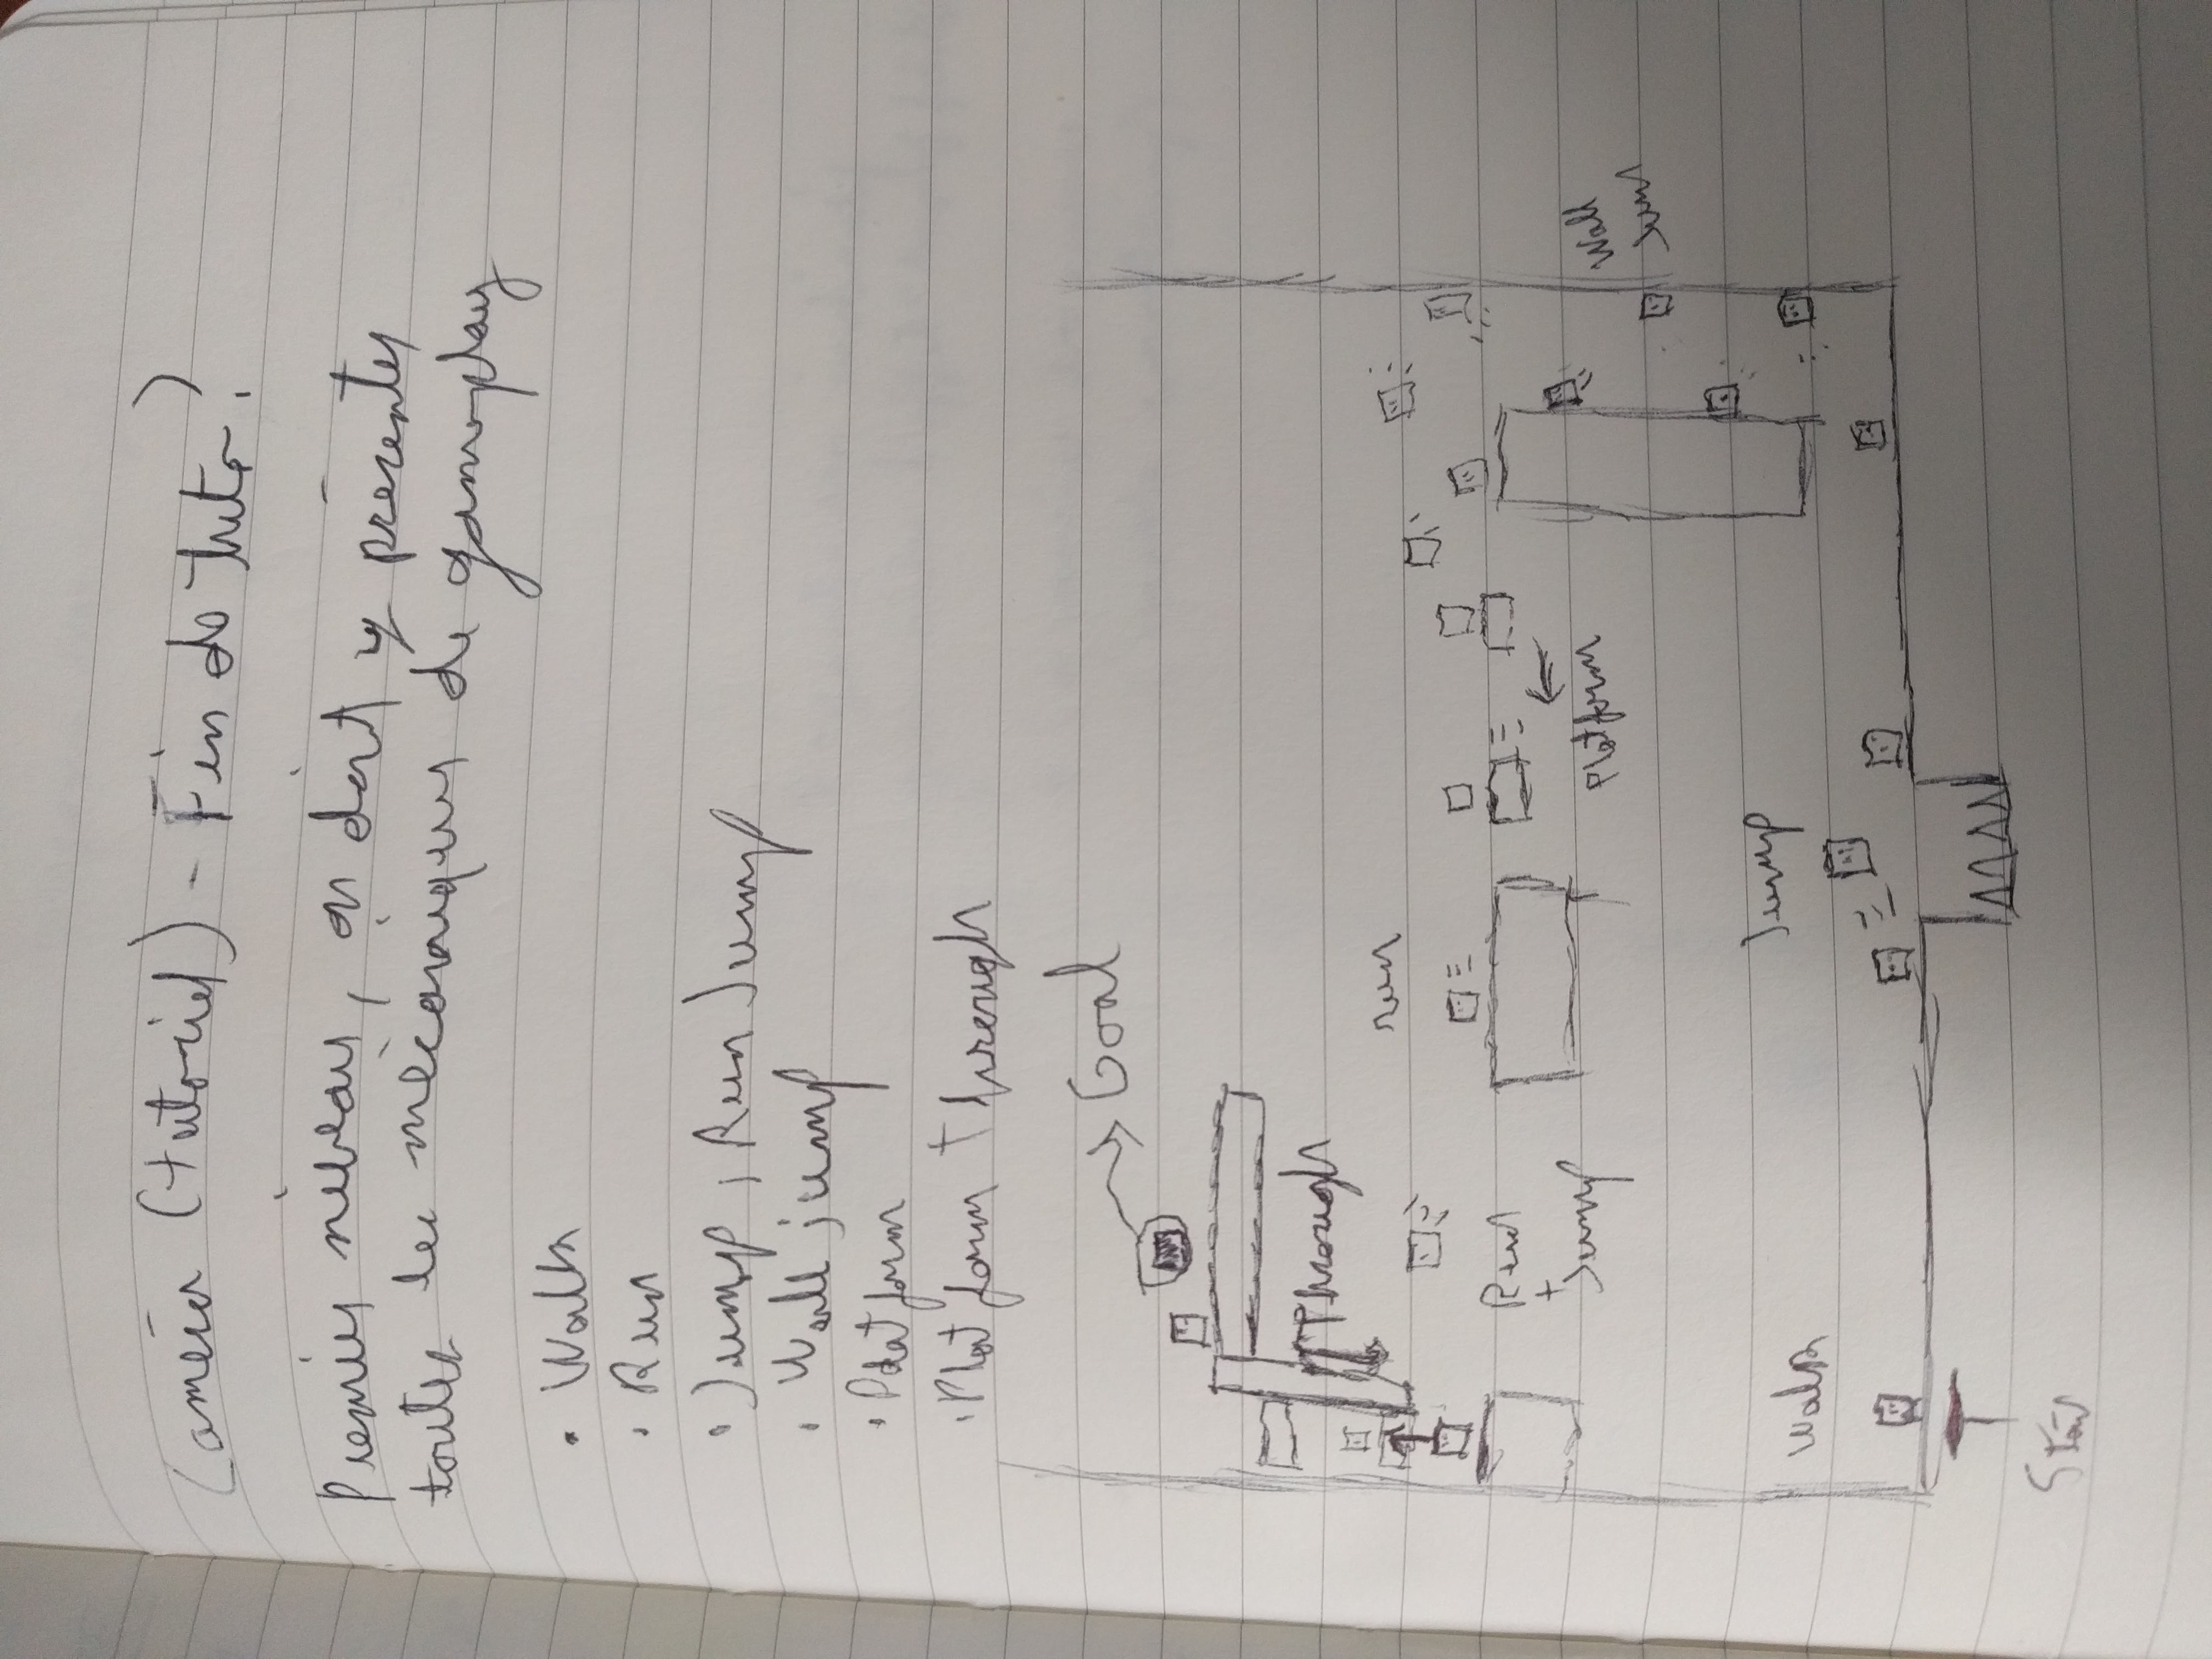 (tutoriel) - Fin de tuto.
Premier niveau, on doit y présenter
toutes les mécaniques de gameplay
• Walk
• Run
• Jump, Run Jump
• Wall jump
• Platform
• Platform through
Goal
Through
run
Run
+
Jump
Platform
Wall
Jump
Walk